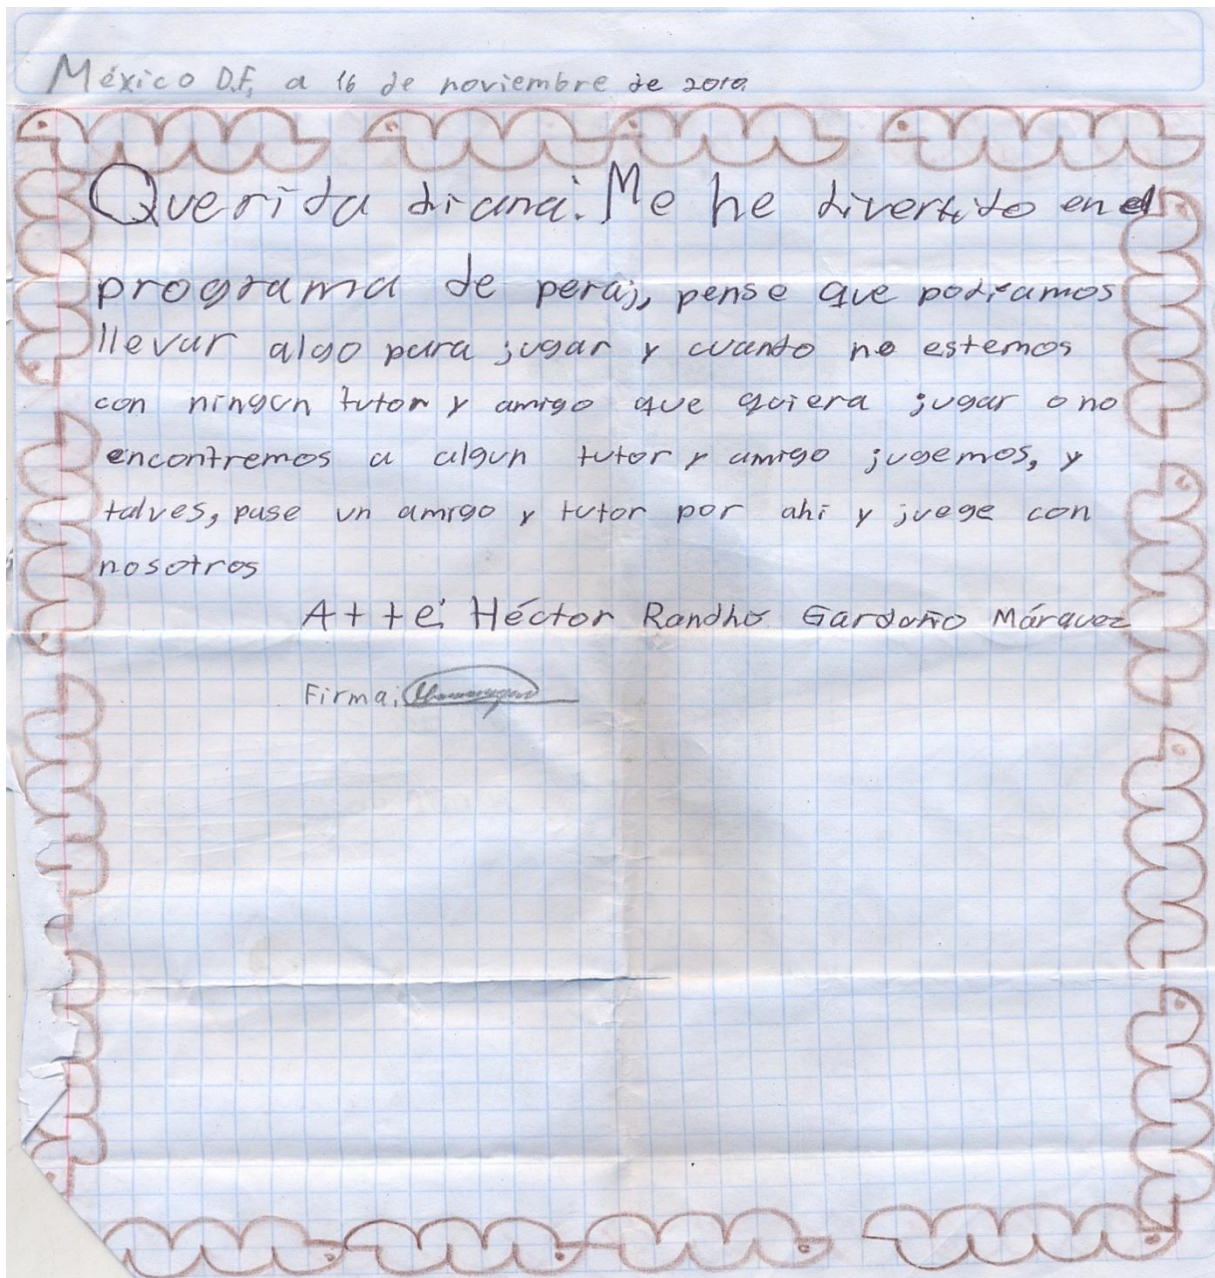 México D.F, a 16 de noviembre de 2010
Querida diana: Me he divertido en el
programa de peraj, pense que podiamos
llevar algo para jugar y cuando no estemos
con ningun tutor y amigo que quiera jugar o no
encontremos a algun tutor y amigo jugemos, y
talves, pase un amigo y tutor por ahi y juege con
nosotros
Atte: Héctor Randho Garduño Márquez
Firma: